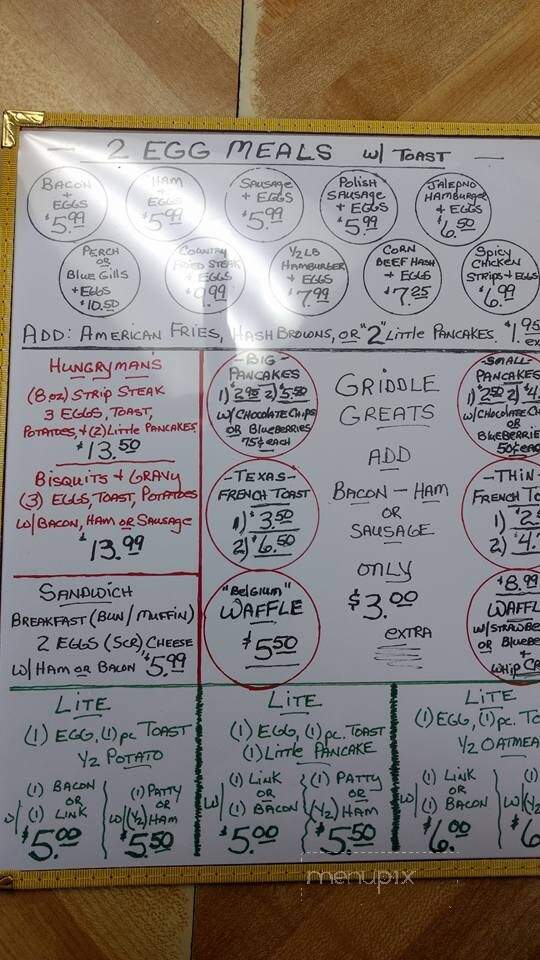 2 EGG MEALS w/ TOAST
BACON + EGGS $5.99
HAM + EGGS $5.99
SAUSAGE + EGGS $5.99
POLISH SAUSAGE + EGGS $5.99
JALEPNO HAMBURGER + EGGS $6.50
PERCH OR BLUE GILLS + EGGS $10.50
COUNTRY FRIED STEAK + EGGS $9.99
1/2 LB HAMBURGER + EGGS $7.99
CORN BEEF HASH + EGGS $7.25
SPICY CHICKEN STRIPS + EGGS $6.99
ADD: AMERICAN FRIES, HASH BROWNS, OR "2" LITTLE PANCAKES. $1.95
HUNGRYMAN'S
(8 oz) STRIP STEAK
3 EGGS, TOAST,
POTATOES, + (2) LITTLE PANCAKES
$13.50
BISQUITS + GRAVY
(3) EGGS, TOAST, POTATOES
W/ BACON, HAM OR SAUSAGE
$13.99
SANDWICH
BREAKFAST (BUN / MUFFIN)
2 EGGS (SCR), CHEESE
W/ HAM OR BACON $5.99
- BIG -
PANCAKES
1) $2.95 2) $5.50
W/ CHOCOLATE CHIPS
OR BLUEBERRIES
75¢ EACH
- TEXAS -
FRENCH TOAST
1) $3.50
2) $6.50
"BELGIUM"
WAFFLE
$5.50
GRIDDLE
GREATS
ADD
BACON - HAM
OR
SAUSAGE
ONLY
$3.00
EXTRA
- SMALL -
PANCAKES
1) $2.50 2) $4.
W/ CHOCOLATE CH
OR BLUEBERRIE
50¢ EAC
- THIN -
FRENCH TO
1) $2.
2) $4.
$8.99
WAFFL
W/ STRAWBE
OR BLUEBE
+
WHIP CR
LITE
(1) EGG, (1) PC. TOAST
1/2 POTATO
W/ (1) BACON OR (1) LINK $5.00
(1) PATTY OR W/ (1/2) HAM $5.50
LITE
(1) EGG, (1) PC. TOAST
(1) LITTLE PANCAKE
W/ (1) LINK OR (1) BACON $5.00
(1) PATTY OR (1/2) HAM $5.50
LITE
(1) EGG, (1) PC. TO
1/2 OATMEA
W/ (1) LINK OR (1) BACON $6.00
menupix